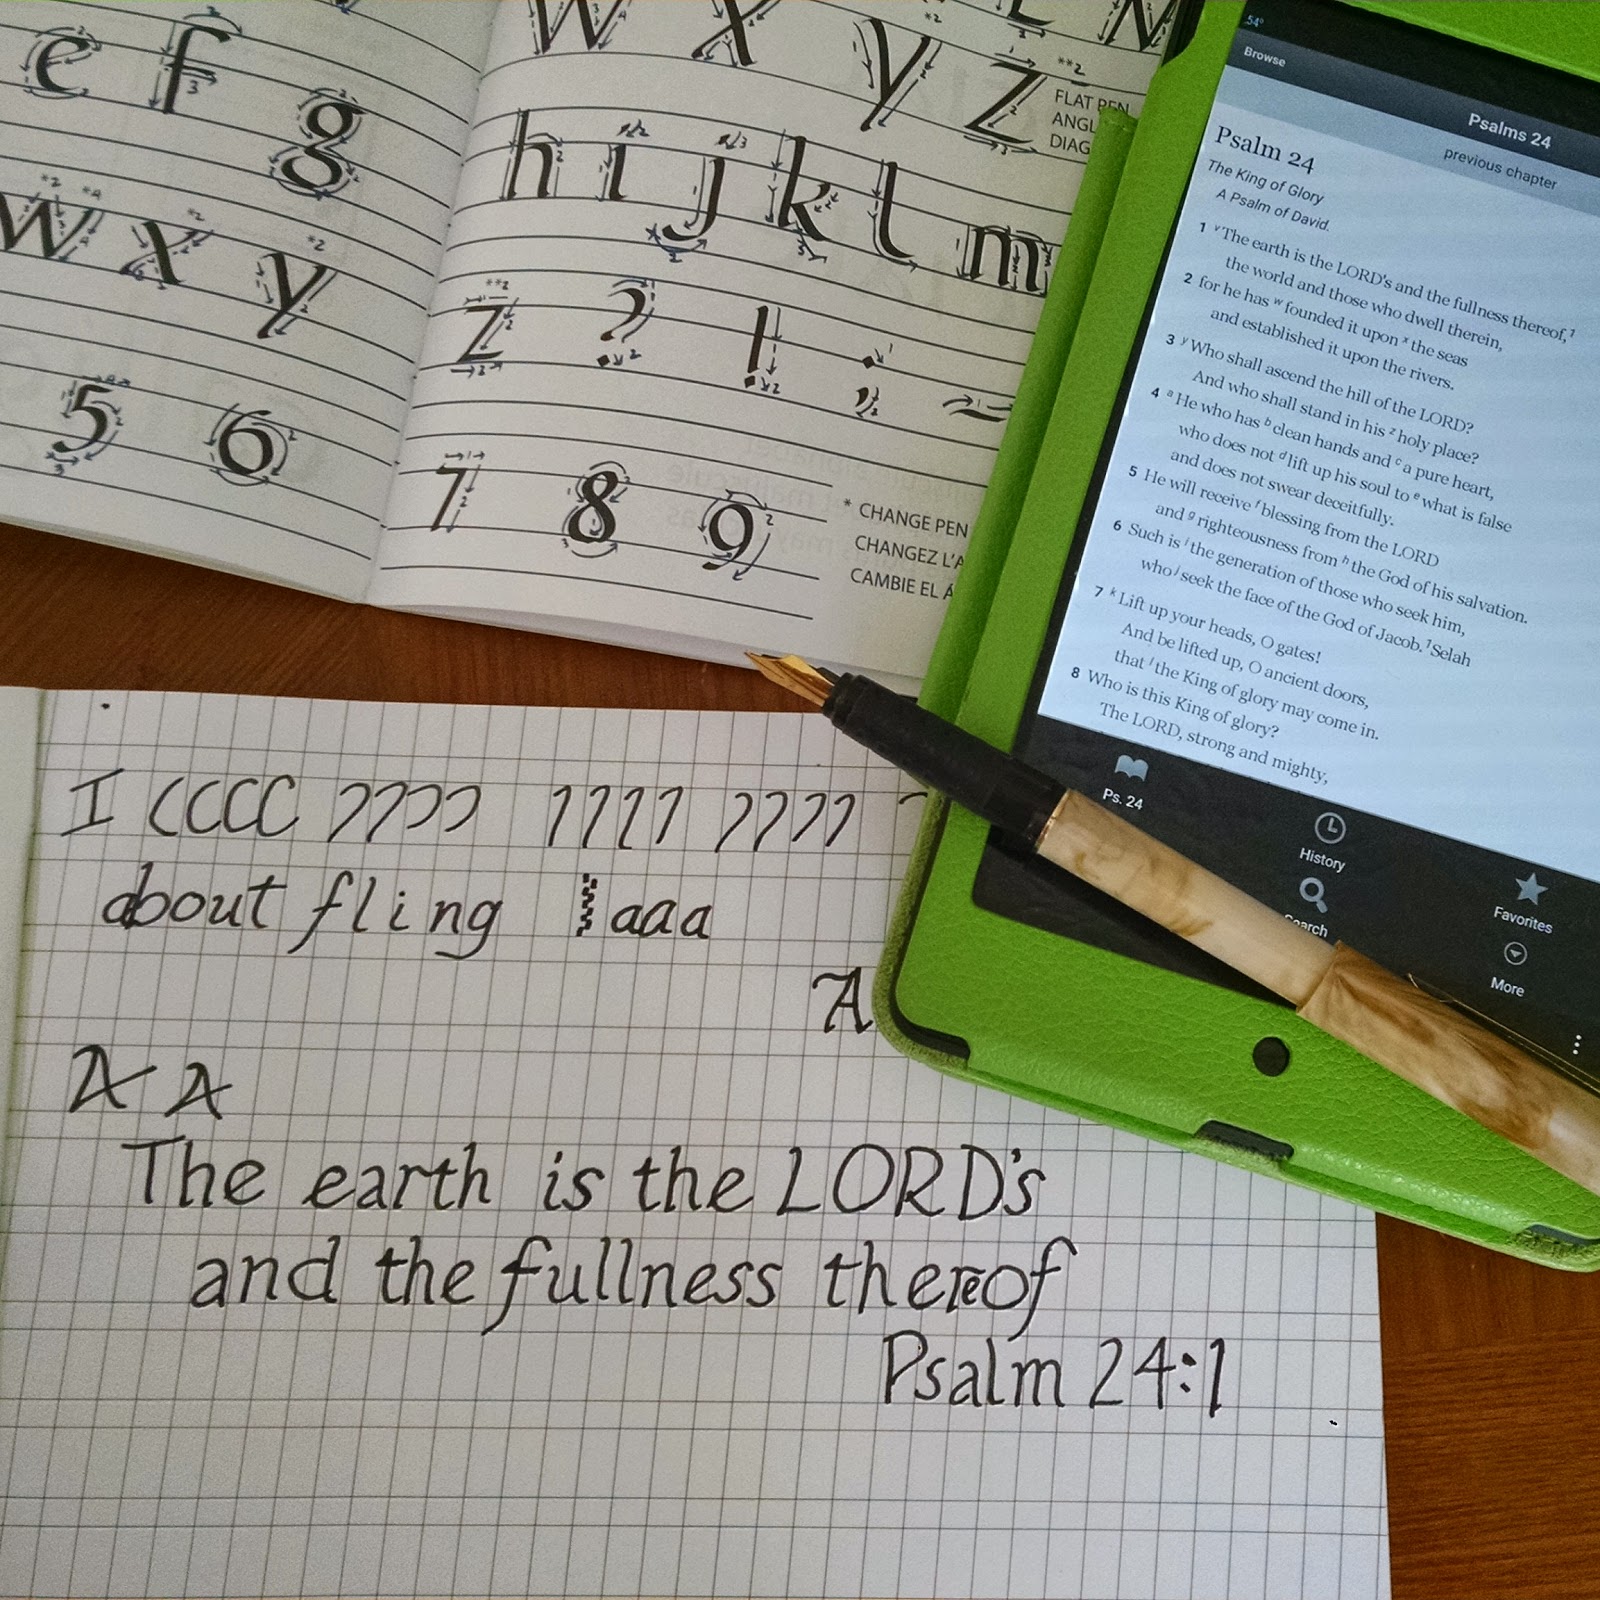 e f g
w x y
5 6
W X Y Z
**2
FLAT PEN
ANGL
DIAG
h i j k l m
z ? ! : ; ~
7 8 9
* CHANGE PEN
CHANGEZ L'A
CAMBIE EL Á
54°
Browse
Psalms 24
previous chapter
Psalm 24
The King of Glory
A Psalm of David.
1 v The earth is the LORD's and the fullness thereof, 1
the world and those who dwell therein,
2 for he has w founded it upon x the seas
and established it upon the rivers.
3 y Who shall ascend the hill of the LORD?
And who shall stand in his z holy place?
4 a He who has b clean hands and c a pure heart,
who does not d lift up his soul to e what is false
and does not swear deceitfully.
5 He will receive f blessing from the LORD
and g righteousness from h the God of his salvation.
6 Such is i the generation of those who seek him,
who j seek the face of the God of Jacob. 1 Selah
7 k Lift up your heads, O gates!
And be lifted up, O ancient doors,
that l the King of glory may come in.
8 Who is this King of glory?
The LORD, strong and mighty,
Ps. 24
History
Search
Favorites
More
I
about fling aaa
A
A A
The earth is the LORD's
and the fullness thereof
Psalm 24:1